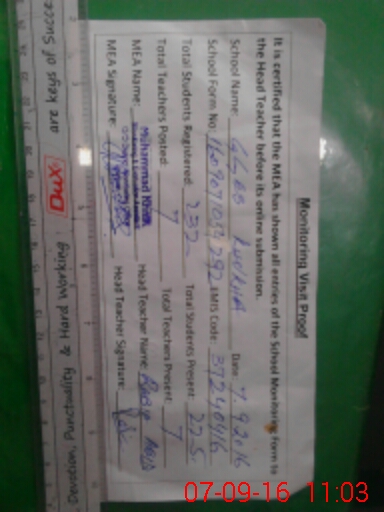 Monitoring Visit Proof
It is certified that the MEA has shown all entries of the School Monitoring Form to
the Head Teacher before its online submission.
School Name: Date 7.9.2016
School Form No: EMIS Code: 37240416
Total Students Registered: 232 Total Students Present: 225
Total Teachers Posted: 7 Total Teachers Present: 7
MEA Name: Muhammad Khan Head Teacher Name:
MEA Signature: Head Teacher Signature:
Devotion, Punctuality & Hard Working DUX are keys of Success
07-09-16 11:03